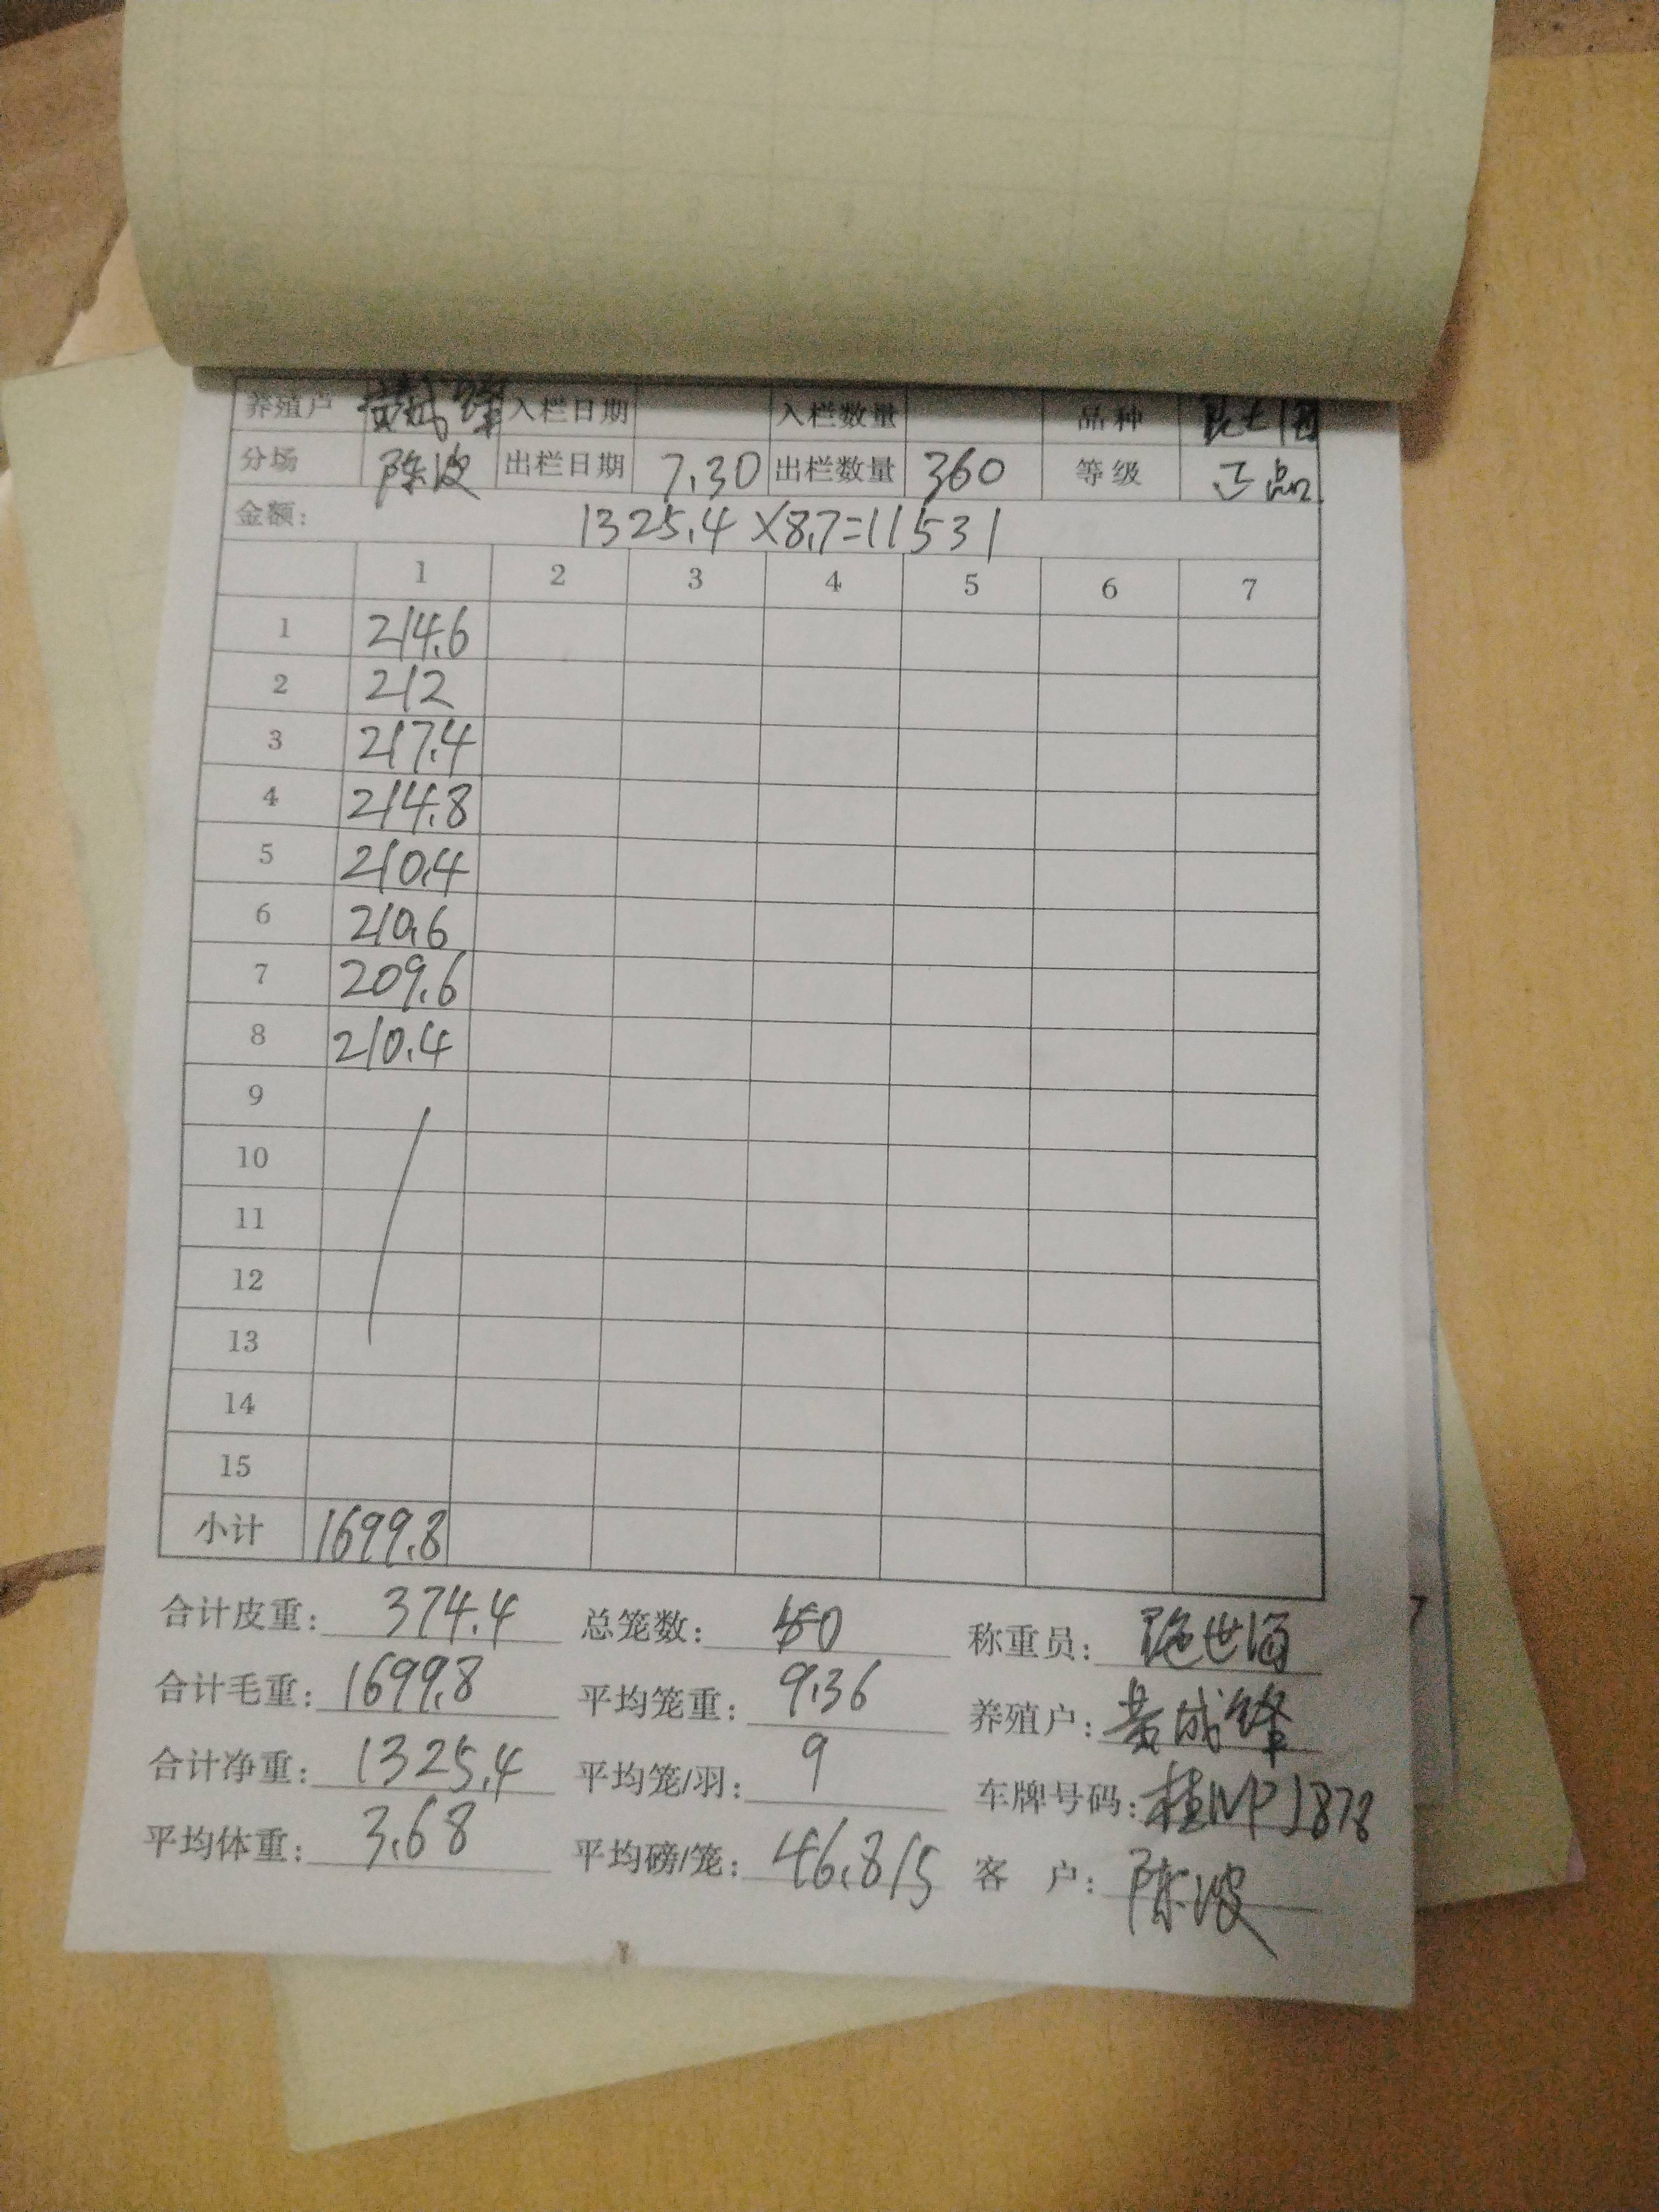 养殖户 黄成锋 入栏日期 入栏数量 品种
分场 陈波 出栏日期 7.30 出栏数量 360 等级 正品
金额: 1325.4×8.7=11531
1 2 3 4 5 6 7
1 214.6
2 212
3 217.4
4 214.8
5 210.4
6 210.6
7 209.6
8 210.4
9
10
11
12
13
14
15
小计 1699.8
合计皮重: 374.4 总笼数: 40 称重员:
合计毛重: 1699.8 平均笼重: 9.36 养殖户: 黄成锋
合计净重: 1325.4 平均笼/羽: 9 车牌号码: 桂NP1878
平均体重: 3.68 平均磅/笼: 46.8/5 客 户: 陈波